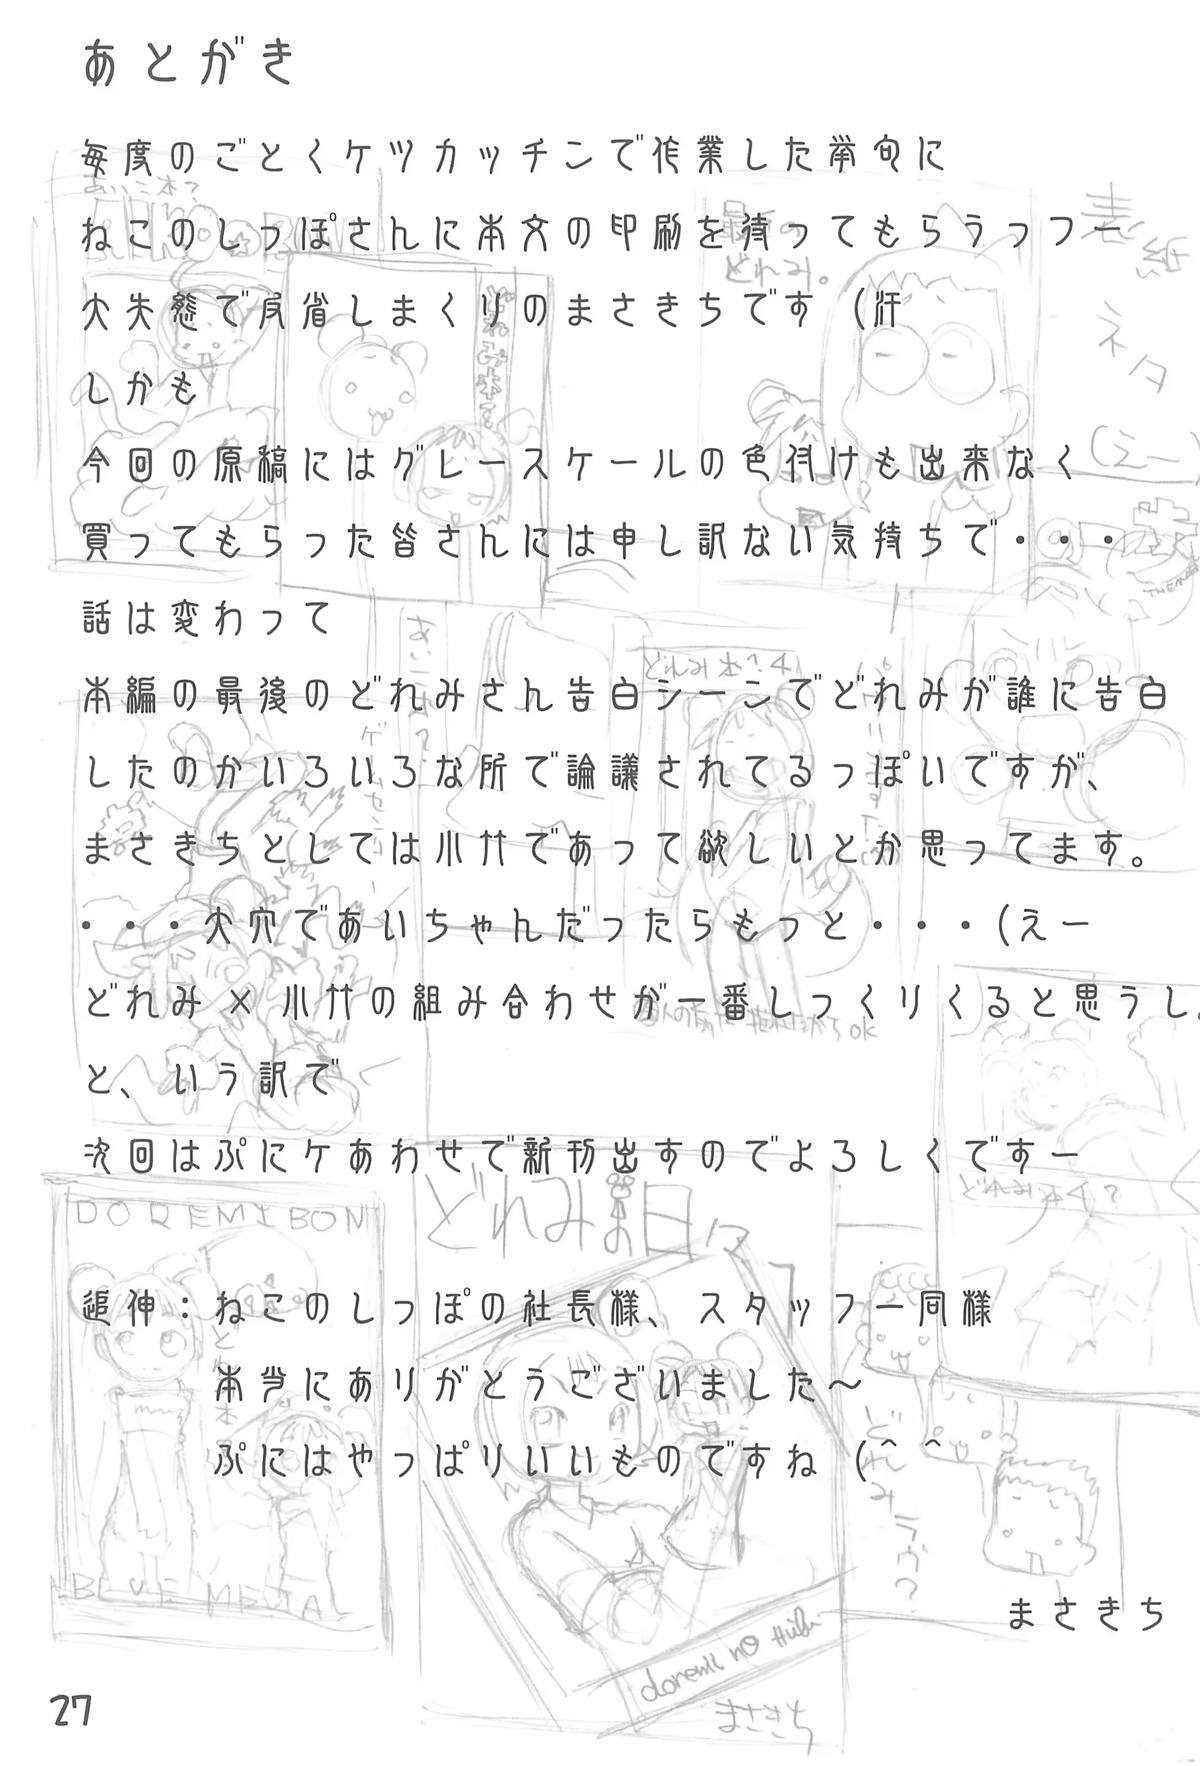 あとがき
毎度のごとくケツカッチンで作業した挙句に
ねこのしっぽさんに本文の印刷を待ってもらうっつー
大失態で反省しまくりのまさきちです（汗
しかも
今回の原稿にはグレースケールの色付けも出来なく
買ってもらった皆さんには申し訳ない気持ちで・・・
話は変わって
本編の最後のどれみさん告白シーンでどれみが誰に告白
したのかいろいろな所で論議されてるっぽいですが、
まさきちとしては小竹であって欲しいとか思ってます。
・・・大穴であいちゃんだったらもっと・・・（えー
どれみ×小竹の組み合わせが一番しっくりくると思うし。
と、いう訳で
次回はぷにケあわせで新刊出すのでよろしくですー
追伸：ねこのしっぽの社長様、スタッフ一同様
本当にありがとうございました～
ぷにはやっぱりいいものですね（＾＾
まさきち
27
あいこ本？
最新の
どれみ。
表紙
ネタ
（えー）
どれみ本？
DOREMIBON
BLUE METAL
どれみの日々
どれみラヴ？
doremi no Hibi
まさきち